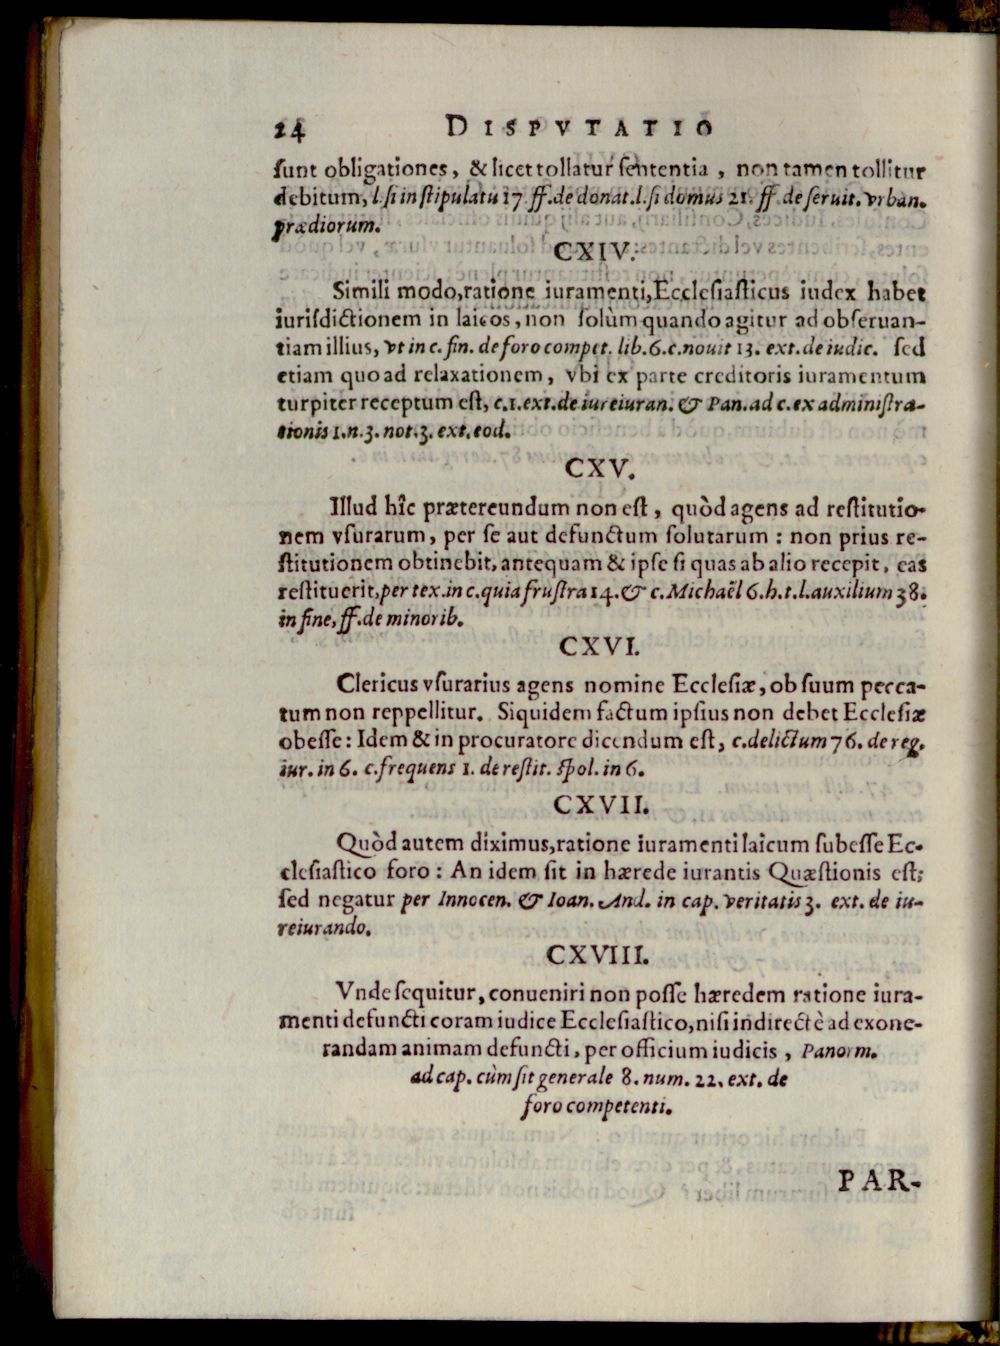 24 DISPVTATIO
sunt obligationes, & licet tollatur sententia, non tamen tollitur
debitum, l. si in stipulatu 17 ff. de donat. l. si domus 21. ff. de seruit. vrban.
prædiorum.
CXIV.
Simili modo, ratione iuramenti, Ecclesiasticus iudex habet
iurisdictionem in laicos, non solùm quando agitur ad obseruan-
tiam illius, vt in c. fin. de foro compet. lib. 6. c. nouit 13. ext. de iudic. sed
etiam quoad relaxationem, vbi ex parte creditoris iuramentum
turpiter receptum est, c. 1. ext. de iureiuran. & Pan. ad c. ex administra-
tionis 1. n. 3. not. 3. ext. eod.
CXV.
Illud hîc prætereundum non est, quòd agens ad restitutio-
nem vsurarum, per se aut defunctum solutarum : non prius re-
stitutionem obtinebit, antequam & ipse si quas ab alio recepit, eas
restituerit, per tex. in c. quia frustra 14. & c. Michaël 6. h. t. l. auxilium 38.
in fine, ff. de minorib.
CXVI.
Clericus vsurarius agens nomine Ecclesiæ, ob suum pecca-
tum non reppellitur. Siquidem factum ipsius non debet Ecclesiæ
obesse : Idem & in procuratore dicendum est, c. delictum 76. de reg.
iur. in 6. c. frequens 1. de restit. spol. in 6.
CXVII.
Quòd autem diximus, ratione iuramenti laicum subesse Ec-
clesiastico foro : An idem sit in hærede iurantis Quæstionis est;
sed negatur per Innocen. & Ioan. And. in cap. veritatis 3. ext. de iu-
reiurando.
CXVIII.
Vnde sequitur, conueniri non posse hæredem ratione iura-
menti defuncti coram iudice Ecclesiastico, nisi indirectè ad exone-
randam animam defuncti, per officium iudicis, Panorm.
ad cap. cùm sit generale 8. num. 22. ext. de
foro competenti.
PAR-